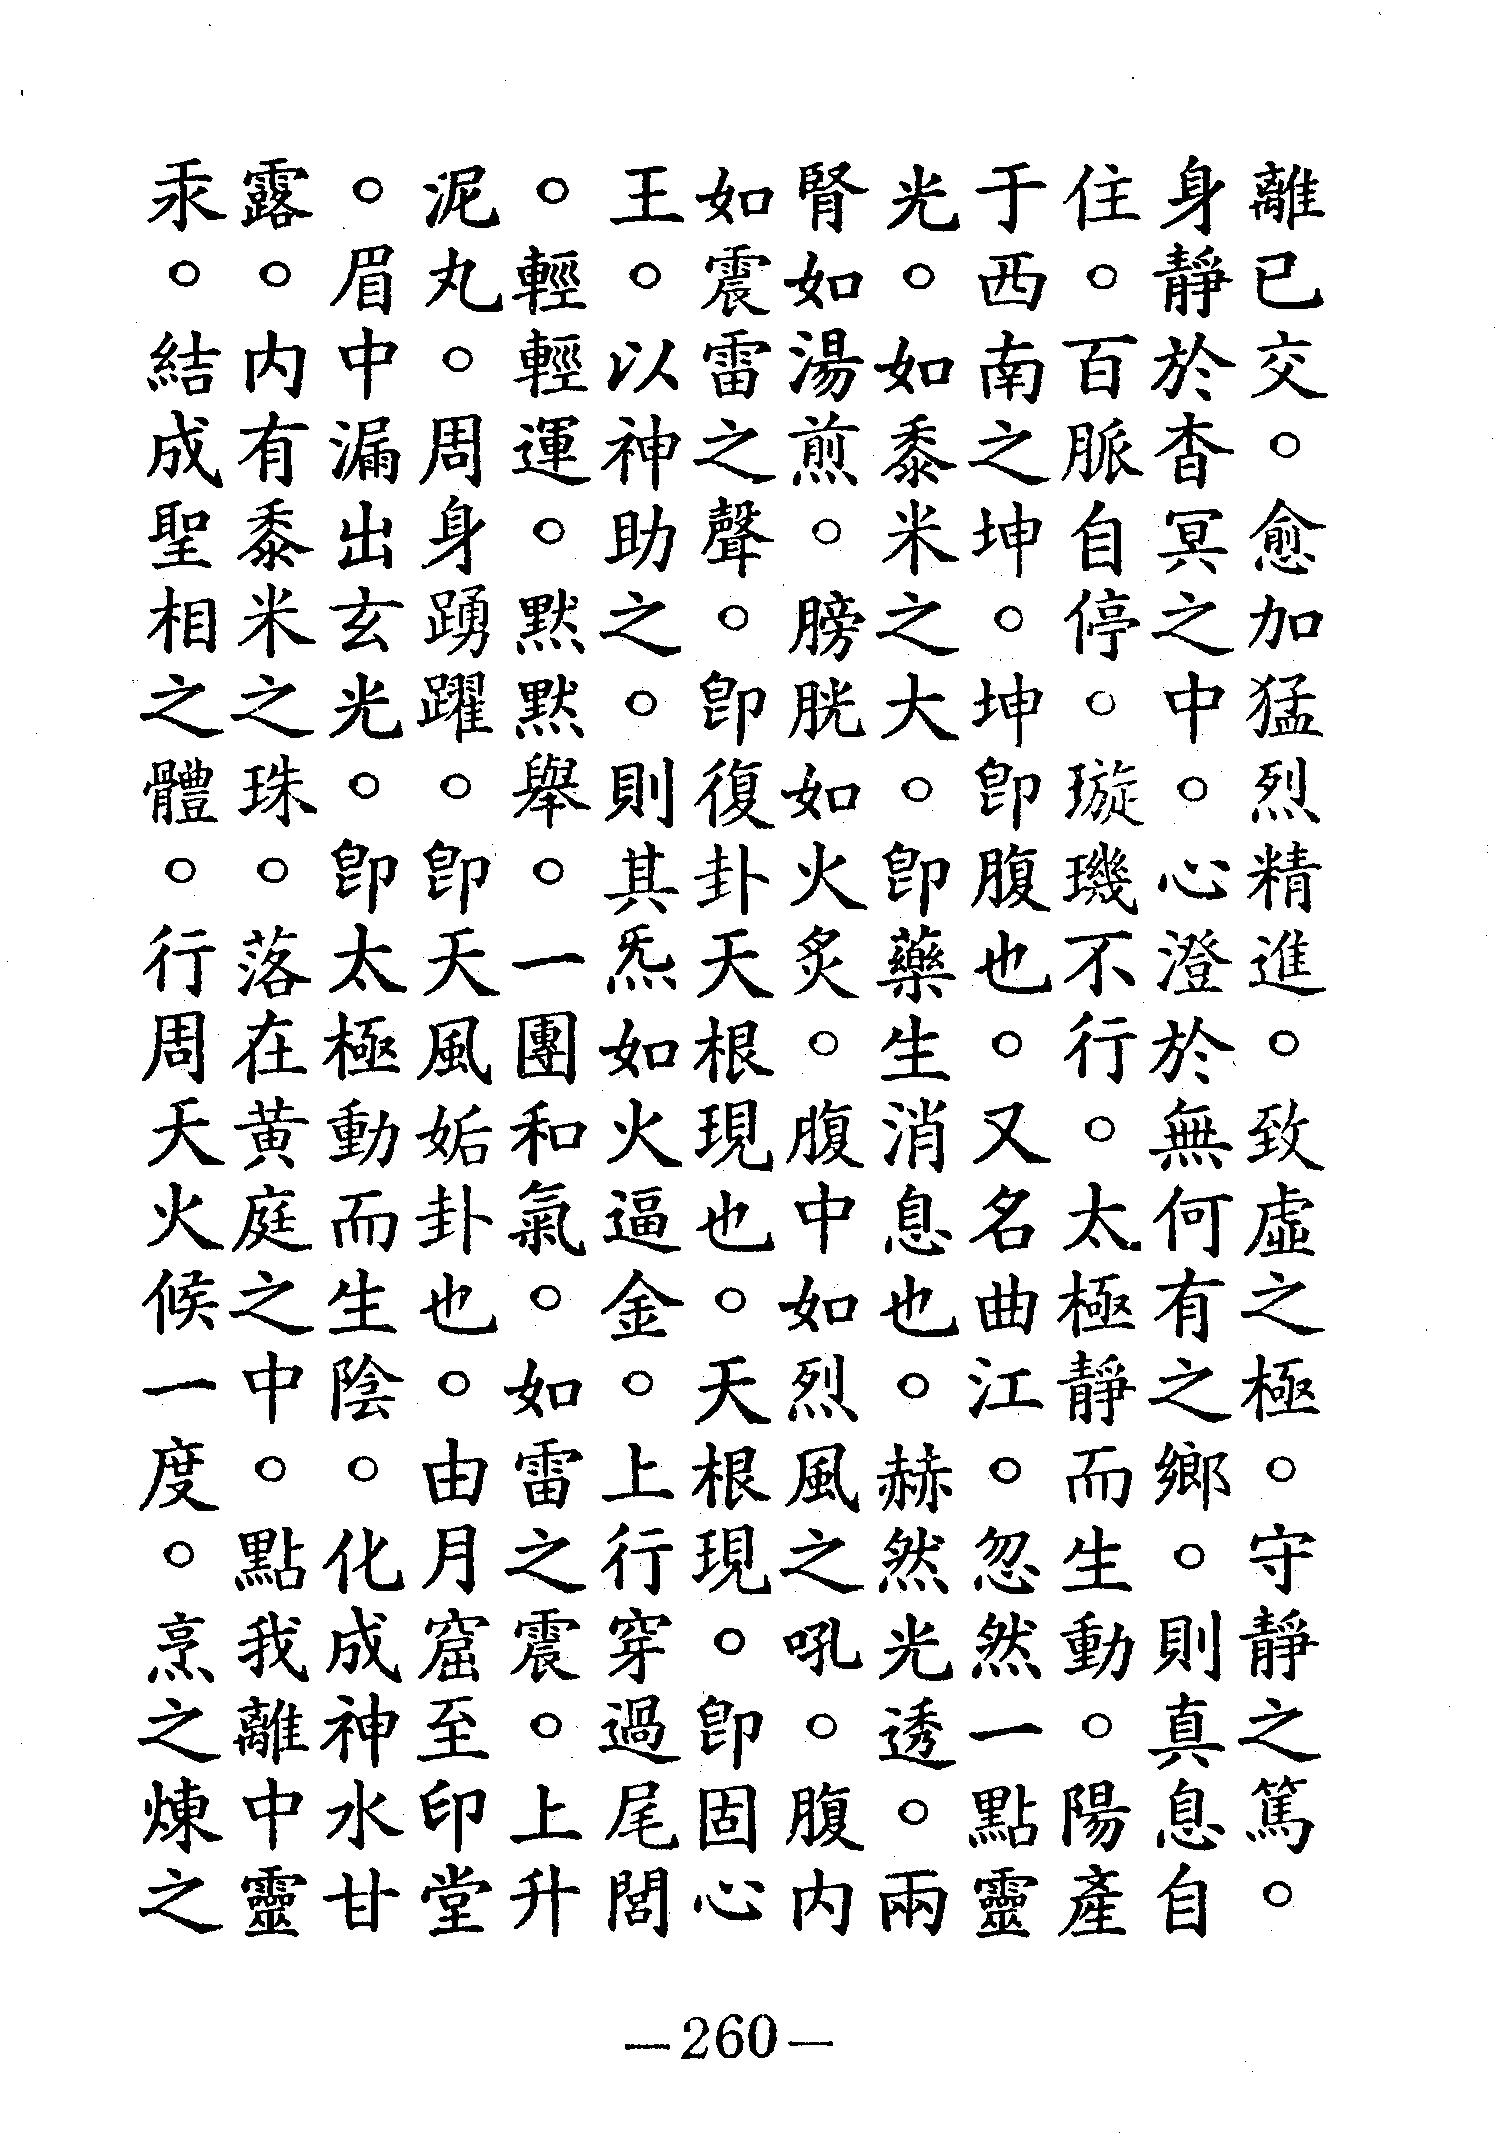 離已交。愈加猛烈精進。致虛之極。守靜之篤。
身靜於杳冥之中。心澄於無何有之鄉。則真息自
住。百脈自停。璇璣不行。太極靜而生動。陽產
于西南之坤。坤卽腹也。又名曲江。忽然一點靈
光。如黍米之大。卽藥生消息也。赫然光透。兩
腎如湯煎。膀胱如火炙。腹中如烈風之吼。腹內
如震雷之聲。卽復卦天根現也。天根現。卽固心
王。以神助之。則其炁如火逼金。上行穿過尾閭
。輕輕運。默默舉。一團和氣。如雷之震。上升
泥丸。周身踴躍。卽天風姤卦也。由月窟至印堂
。眉中漏出玄光。卽太極動而生陰。化成神水甘
露。內有黍米之珠。落在黃庭之中。點我離中靈
汞。結成聖相之體。行周天火候一度。烹之煉之
—260—